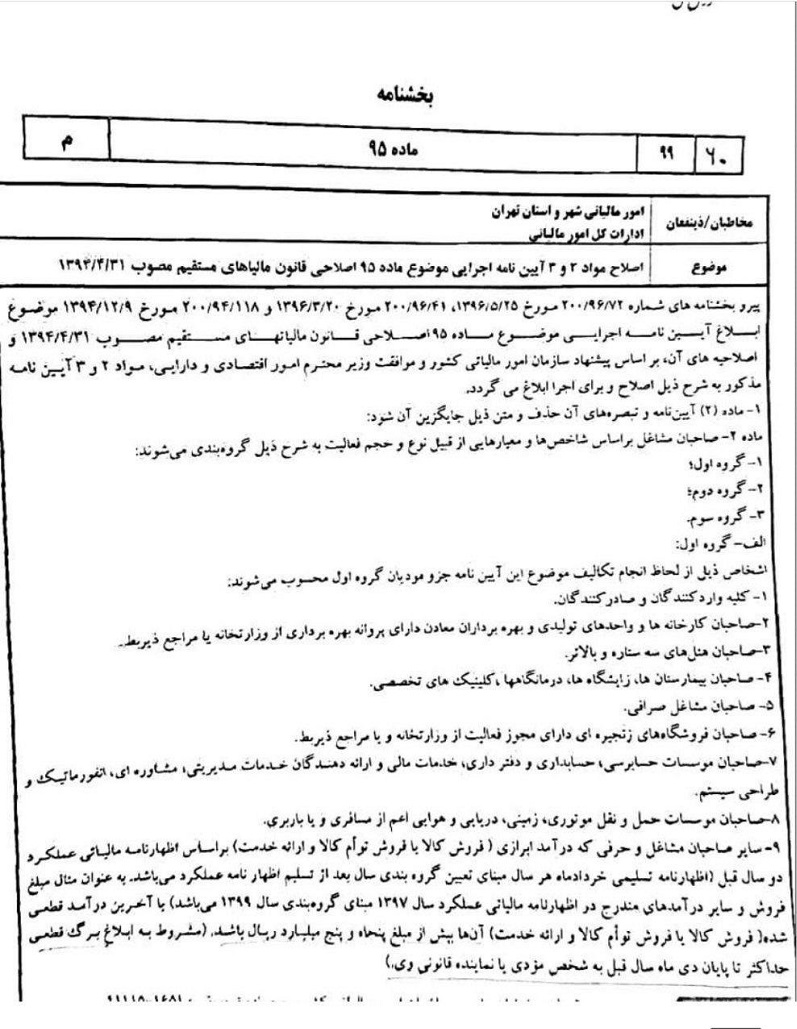 بخشنامه
۶۰ ۹۹ ماده ۹۵ م
مخاطبان/ذینفعان امور مالیاتی شهر و استان تهران
ادارات کل امور مالیاتی
موضوع اصلاح مواد ۲ و ۳ آیین نامه اجرایی موضوع ماده ۹۵ اصلاحی قانون مالیاهای مستقیم مصوب ۱۳۹۴/۴/۳۱
پیرو بخشنامه های شماره ۲۰۰/۹۶/۷۲ مورخ ۱۳۹۶/۵/۲۵، ۲۰۰/۹۶/۴۱ مورخ ۱۳۹۶/۳/۲۰ و ۲۰۰/۹۴/۱۱۸ مورخ ۱۳۹۴/۱۲/۹ موضوع
ابلاغ آیین نامه اجرایی موضوع ماده ۹۵ اصلاحی قانون مالیاتهای مستقیم مصوب ۱۳۹۴/۴/۳۱ و
اصلاحیه های آن، بر اساس پیشنهاد سازمان امور مالیاتی کشور و موافقت وزیر محترم امور اقتصادی و دارایی، مواد ۲ و ۳ آیین نامه
مذکور به شرح ذیل اصلاح و برای اجرا ابلاغ می گردد.
۱- ماده (۲) آیین‌نامه و تبصره‌های آن حذف و متن ذیل جایگزین آن شود:
ماده ۲- صاحبان مشاغل براساس شاخص‌ها و معیارهایی از قبیل نوع و حجم فعالیت به شرح ذیل گروه‌بندی می‌شوند:
۱- گروه اول؛
۲- گروه دوم؛
۳- گروه سوم.
الف- گروه اول:
اشخاص ذیل از لحاظ انجام تکالیف موضوع این آیین نامه جزو مودیان گروه اول محسوب می‌شوند:
۱- کلیه واردکنندگان و صادرکنندگان.
۲-صاحبان کارخانه ها و واحدهای تولیدی و بهره برداران معادن دارای پروانه بهره برداری از وزارتخانه یا مراجع ذیربط.
۳-صاحبان هتل‌های سه ستاره و بالاتر.
۴- صاحبان بیمارستان ها، زایشگاه ها، درمانگاهها ،کلینیک های تخصصی.
۵- صاحبان مشاغل صرافی.
۶- صاحبان فروشگاه‌های زنجیره ای دارای مجوز فعالیت از وزارتخانه و یا مراجع ذیربط.
۷-صاحبان موسسات حسابرسی، حسابداری و دفتر داری، خدمات مالی و ارائه دهندگان خدمات مدیریتی، مشاوره ای، انفورماتیک و
طراحی سیستم.
۸-صاحبان موسسات حمل و نقل موتوری، زمینی، دریایی و هوایی اعم از مسافری و یا باربری.
۹- سایر صاحبان مشاغل و حرفی که درآمد ابرازی ( فروش کالا یا فروش توأم کالا و ارائه خدمت) براساس اظهارنامه مالیاتی عملکرد
دو سال قبل (اظهارنامه تسلیمی خردادماه هر سال مبنای تعیین گروه بندی سال بعد از تسلیم اظهار نامه عملکرد می‌باشد. به عنوان مثال مبلغ
فروش و سایر درآمدهای مندرج در اظهارنامه مالیاتی عملکرد سال ۱۳۹۷ مبنای گروه‌بندی سال ۱۳۹۹ می‌باشد) یا آخرین درآمد قطعی
شده( فروش کالا یا فروش توأم کالا و ارائه خدمت) آن‌ها بیش از مبلغ پنجاه و پنج میلیارد ریال باشد. (مشروط به ابلاغ برگ قطعی
حداکثر تا پایان دی ماه سال قبل به شخص مؤدی یا نماینده قانونی وی.)